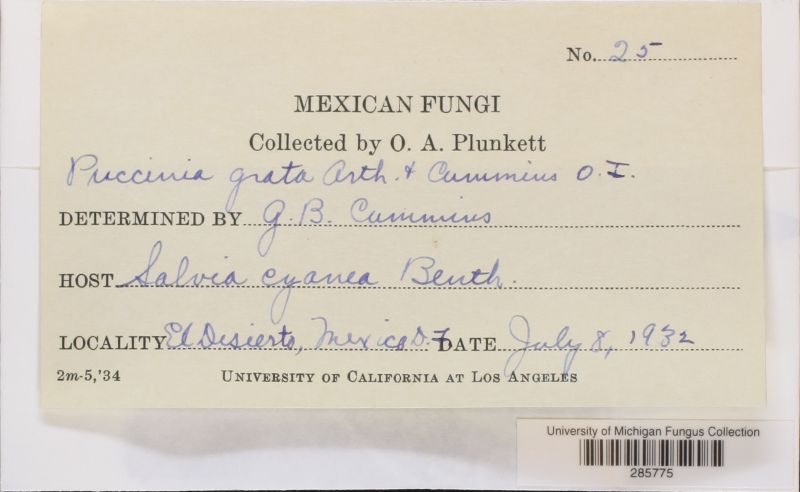 No. 25
MEXICAN FUNGI
Collected by O. A. Plunkett
Puccinia grata Arth. & Cummins O. I.
DETERMINED BY G. B. Cummins
HOST Salvia cyanea Benth.
LOCALITY El Desierto, Mexico D.F. DATE July 8, 1932
2m-5,'34 UNIVERSITY OF CALIFORNIA AT LOS ANGELES
University of Michigan Fungus Collection
285775